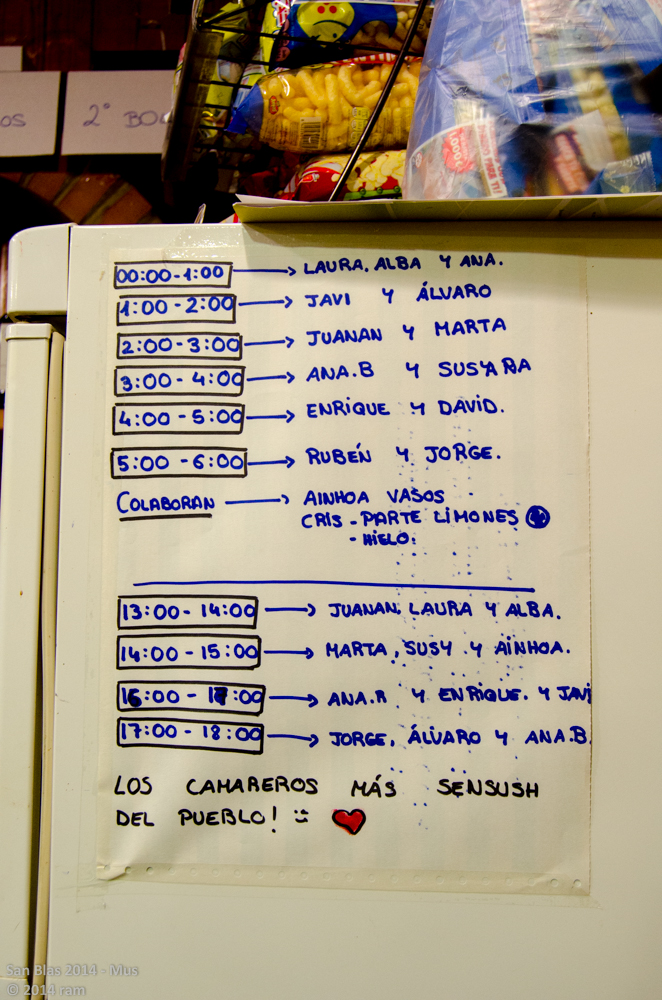 2º BOC
00:00-1:00 → LAURA, ALBA Y ANA.
1:00-2:00 → JAVI Y ÁLVARO
2:00-3:00 → JUANAN Y MARTA
3:00-4:00 → ANA.B Y SUSY
4:00-5:00 → ENRIQUE Y DAVID.
5:00-6:00 → RUBÉN Y JORGE.
COLABORAN → AINHOA VASOS
CRIS - PARTE LIMONES
- HIELO.
13:00-14:00 → JUANAN, LAURA Y ALBA.
14:00-15:00 → MARTA, SUSY Y AINHOA.
16:00-17:00 → ANA.R Y ENRIQUE. Y JAVI
17:00-18:00 → JORGE, ÁLVARO Y ANA.B.
LOS CAMAREROS MÁS SENSUSH
DEL PUEBLO! :) ❤
San Blas 2014 - Mus
© 2014 ram